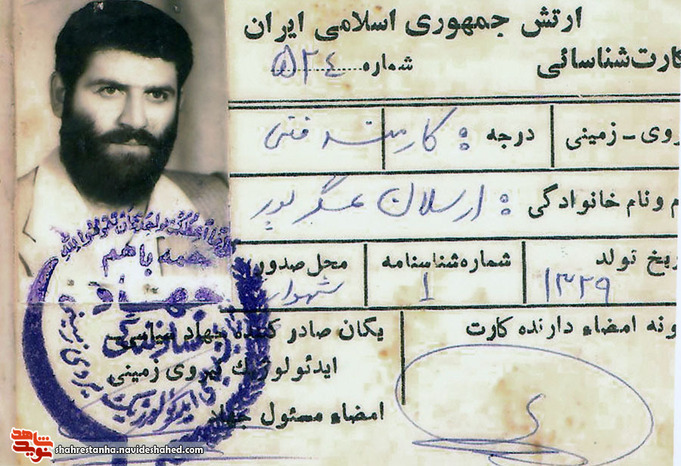 ارتش جمهوری اسلامی ایران
کارت شناسائی
شماره ۵۲٤
روی - زمینی درجه : کارمند فنی
م و نام خانوادگی : ارسلان عسگرپور
ریخ تولد شماره شناسنامه محل صدور
۱۳۲۹ ۱
ونه امضاء دارنده کارت یگان صادر کننده جهاد
ایدئولوژیک نیروی زمینی
امضاء مسئول جهاد
همه با هم
جهاد
shahrestanha.navideshahed.com